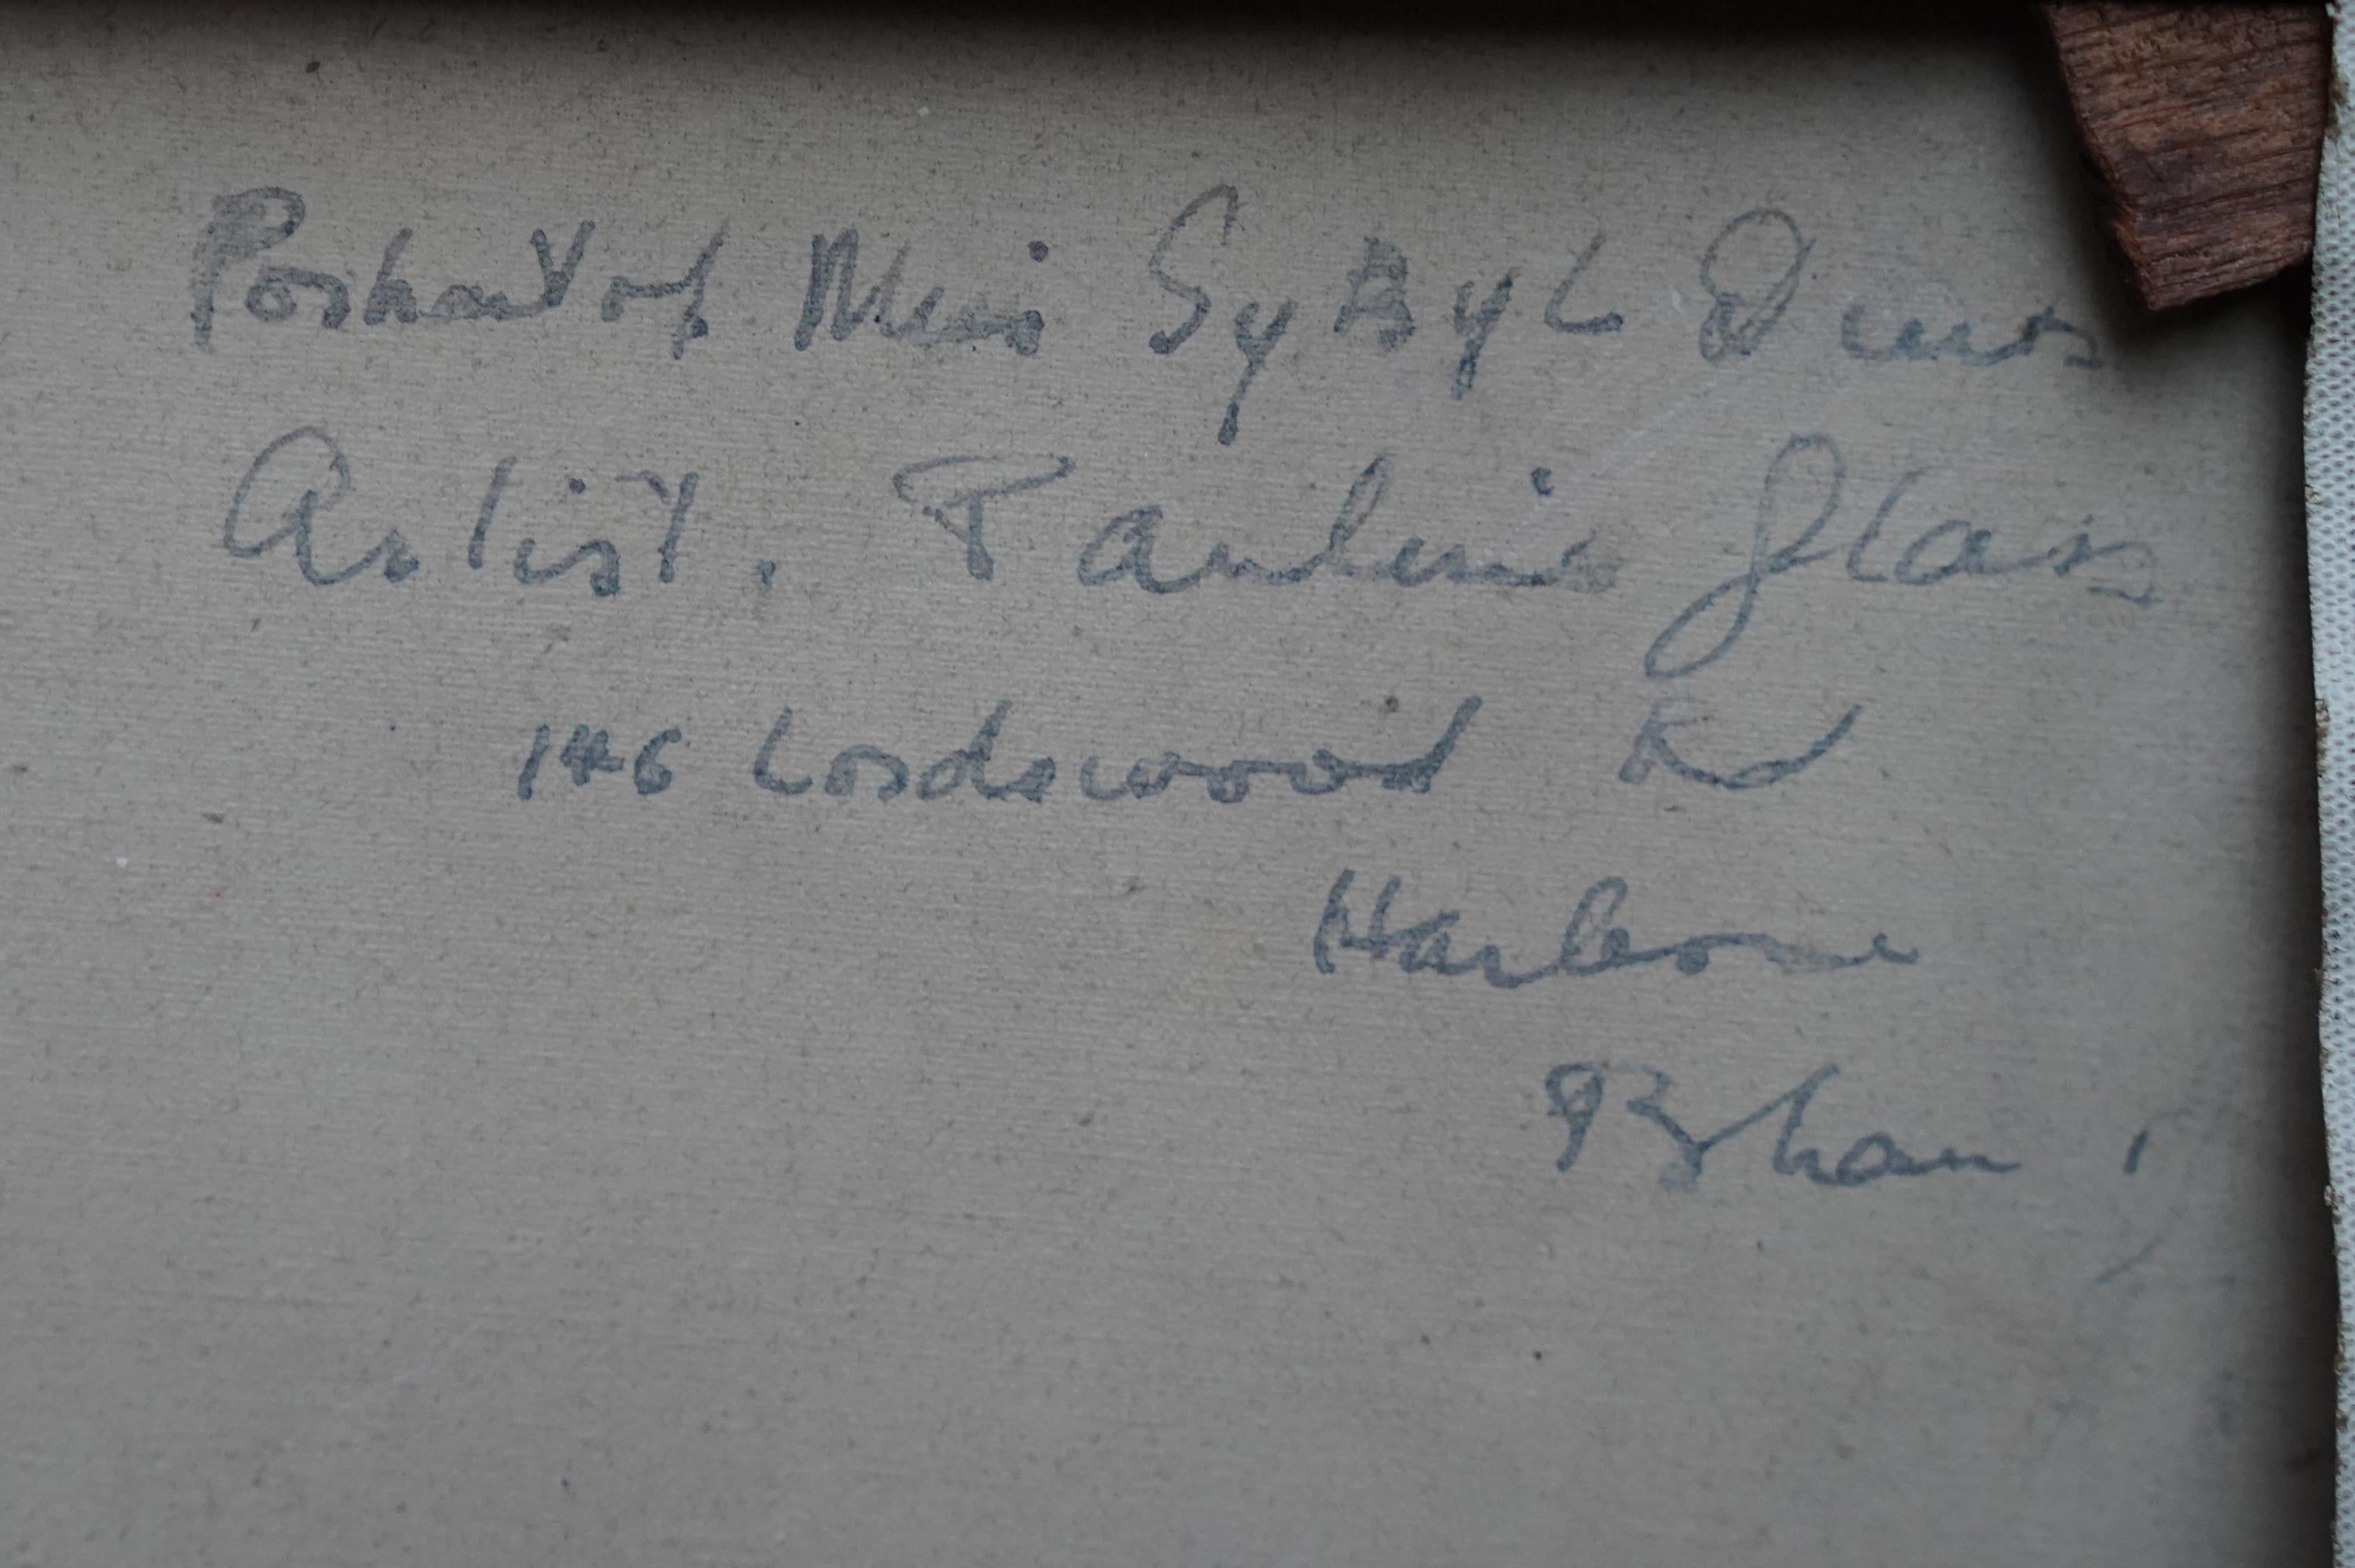 Portrait of Miss SyByL
Artist. Pauline Glass
146 Lordswood Rd
Harborne
B'ham